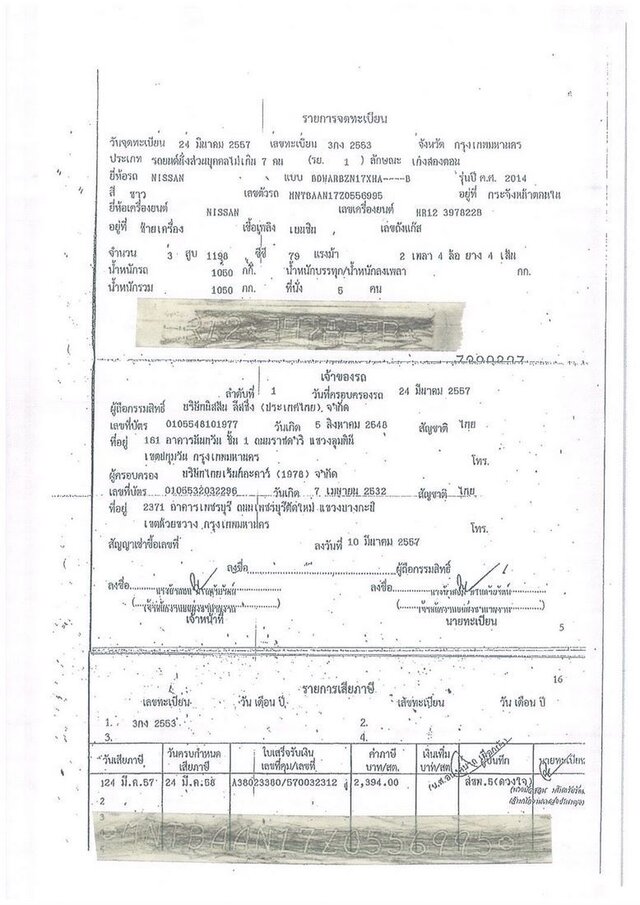 รายการจดทะเบียน
วันจดทะเบียน 24 มีนาคม 2557 เลขทะเบียน 3กง 2553 จังหวัด กรุงเทพมหานคร
ประเภท รถยนต์นั่งส่วนบุคคลไม่เกิน 7 คน (รย. 1 ) ลักษณะ เก๋งสองตอน
ยี่ห้อรถ NISSAN แบบ BDHARBZN17XHA----B รุ่นปี ค.ศ. 2014
สี ขาว เลขตัวรถ MNTBAAN17Z0556995 อยู่ที่ กระจังหน้าตอนใน
ยี่ห้อเครื่องยนต์ NISSAN เลขเครื่องยนต์ HR12 397822B
อยู่ที่ ซ้ายเครื่อง เชื้อเพลิง เบนซิน เลขถังแก๊ส
จำนวน 3 สูบ 1198 ซีซี 79 แรงม้า 2 เพลา 4 ล้อ ยาง 4 เส้น
น้ำหนักรถ 1050 กก. น้ำหนักบรรทุก/น้ำหนักลงเพลา กก.
น้ำหนักรวม 1050 กก. ที่นั่ง 5 คน
เจ้าของรถ
ลำดับที่ 1 วันที่ครอบครองรถ 24 มีนาคม 2557
ผู้ถือกรรมสิทธิ์ บริษัทนิสสัน ลีสซิ่ง (ประเทศไทย) จำกัด
เลขที่บัตร 0105548101977 วันเกิด 5 สิงหาคม 2548 สัญชาติ ไทย
ที่อยู่ 161 อาคารนันทวัน ชั้น 1 ถนนราชดำริ แขวงลุมพินี
เขตปทุมวัน กรุงเทพมหานคร โทร.
ผู้ครอบครอง บริษัทไทยเร้นท์อะคาร์ (1978) จำกัด
เลขที่บัตร 0105532032296 วันเกิด 7 เมษายน 2532 สัญชาติ ไทย
ที่อยู่ 2371 อาคารเพชรบุรี ถนนเพชรบุรีตัดใหม่ แขวงบางกะปิ
เขตห้วยขวาง กรุงเทพมหานคร โทร.
สัญญาเช่าซื้อเลขที่ ลงวันที่ 10 มีนาคม 2557
ลงชื่อ ผู้ถือกรรมสิทธิ์
ลงชื่อ ลงชื่อ
เจ้าหน้าที่ นายทะเบียน
5
16
รายการเสียภาษี
เลขทะเบียน วัน เดือน ปี เลขทะเบียน วัน เดือน ปี
1. 3กง 2553 2.
3. 4.
วันเสียภาษี วันครบกำหนดเสียภาษี ใบเสร็จรับเงิน เลขที่คุม/เลขที่ ค่าภาษี บาท/สต. เงินเพิ่ม บาท/สต. บันทึก นายทะเบียน
1 24 มี.ค.57 24 มี.ค.58 A38023380/570032312 2,394.00 สขพ.5(ดวงใจ)
2
3
4
5